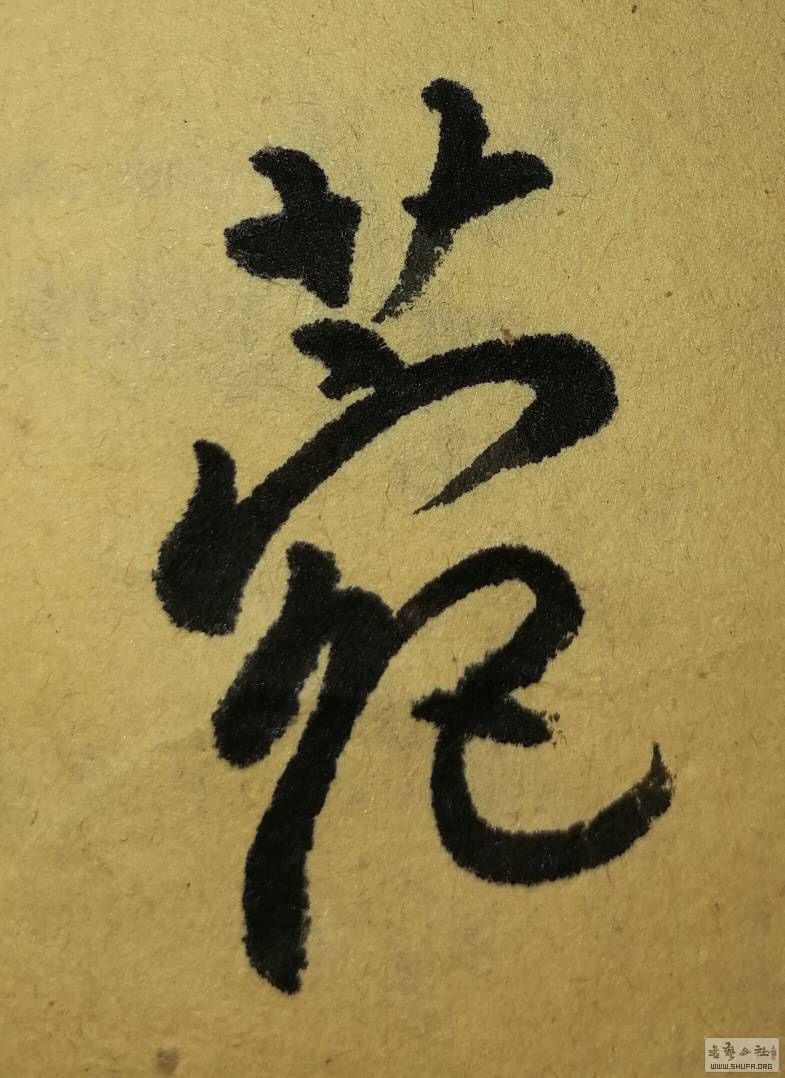 菀
书艺公社
WWW.SHUFA.ORG